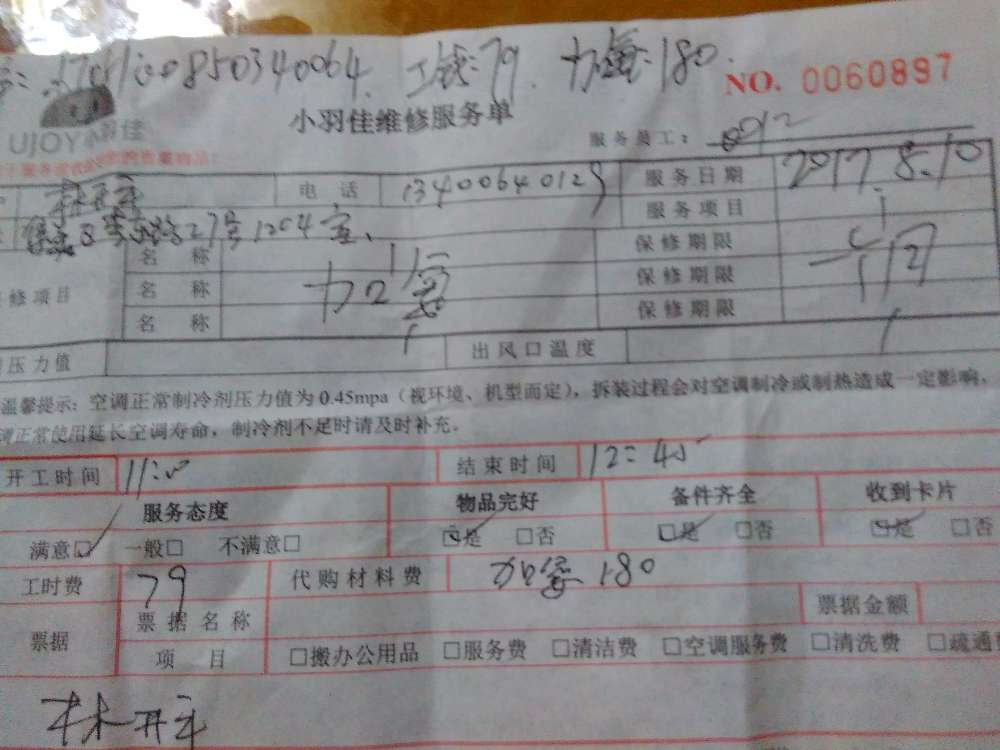 工钱:79. 加氟:180.
NO. 0060897
UJOY小羽佳
小羽佳维修服务单
服务员工:
电话 13400640129 服务日期 2017.8.10
服务项目
27号1204室
名称 保修期限
修项目 名称 加氟 保修期限 1个月
名称 保修期限
压力值 出风口温度
温馨提示:空调正常制冷剂压力值为0.45mpa(视环境、机型而定),拆装过程会对空调制冷或制热造成一定影响,
正常使用延长空调寿命,制冷剂不足时请及时补充。
开工时间 11:00 结束时间 12:40
服务态度 物品完好 备件齐全 收到卡片
满意☑ 一般□ 不满意□ ☑是 □否 ☑是 □否 ☑是 □否
工时费 79 代购材料费 加氟180
票据 票据名称 票据金额
项目 □搬办公用品 □服务费 □清洁费 □空调服务费 □清洗费 □疏通
林开